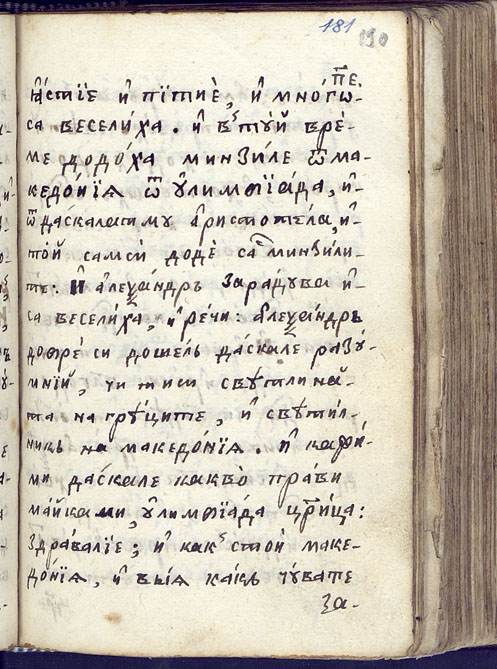 181
190
п҃е
ꙗ҆́стїе и҆ пїтиѐ, и҆ мно́гѡ-
са весели́ха. и҆ в̾ту́й вре́-
ме додо́ха минзи́ле ѿ ма-
кедо́нїѧ ѿ ѹ҆лимпїа́да, и҆-
ѿ даскалатмꙋ а҆ристоте́ла, и҆-
то́й самси́ додѐ сас минзи́ли-
те: И҆ але҆ѯа́ндръ зара́дꙋва и҆-
са весели́ха, и҆ ре́чи: але҆ѯа́ндръ
добре́ си доше́ль да́скале разꙋ́-
мнїй, чи ти си свѣтлина̀-
та на гръ́ците, и҆ свѣти́л-
никь на македо́нїѧ. и҆ кажѝ-
ми да́скале какво̀ пра́ви
ма́йка ми, ѹ҆лимпїа́да цр҃и́ца:
здра́валїе; и҆ как̾ сто́й маке-
до́нїѧ, и҆ вы́ѧ ка́кь чꙋ́вате
за-